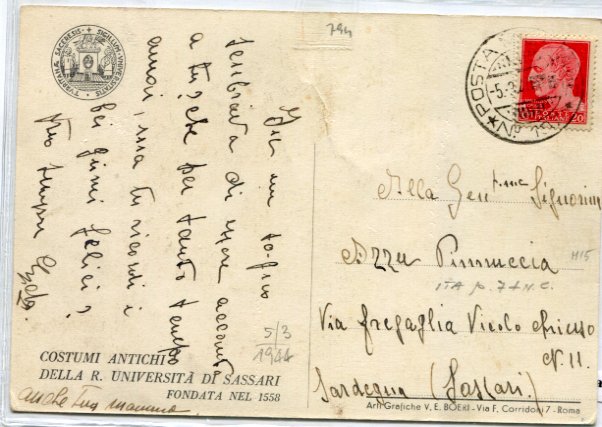 794
TVRRITANA SACERENSIS SIGILLUM UNIVERSITATIS
POSTA
-5.3.
20
Ieri un
sembrava di essere accanto
a te, che per tanto tempo
amai, ma tu ricordi i
bei giorni felici?
Tuo sempre
5/3
1944
COSTUMI ANTICHI
DELLA R. UNIVERSITÀ DI SASSARI
FONDATA NEL 1558
anche tua mamma
Alla Gen.ma Signorina
Azzu Pinuccia
M15
ITA p. 7 + N.C.
Via Fregaglia Vicolo chiuso
N. 11.
Sardegna (Sassari.)
Arti Grafiche V. E. BOERI - Via F. Corridoni 7 - Roma